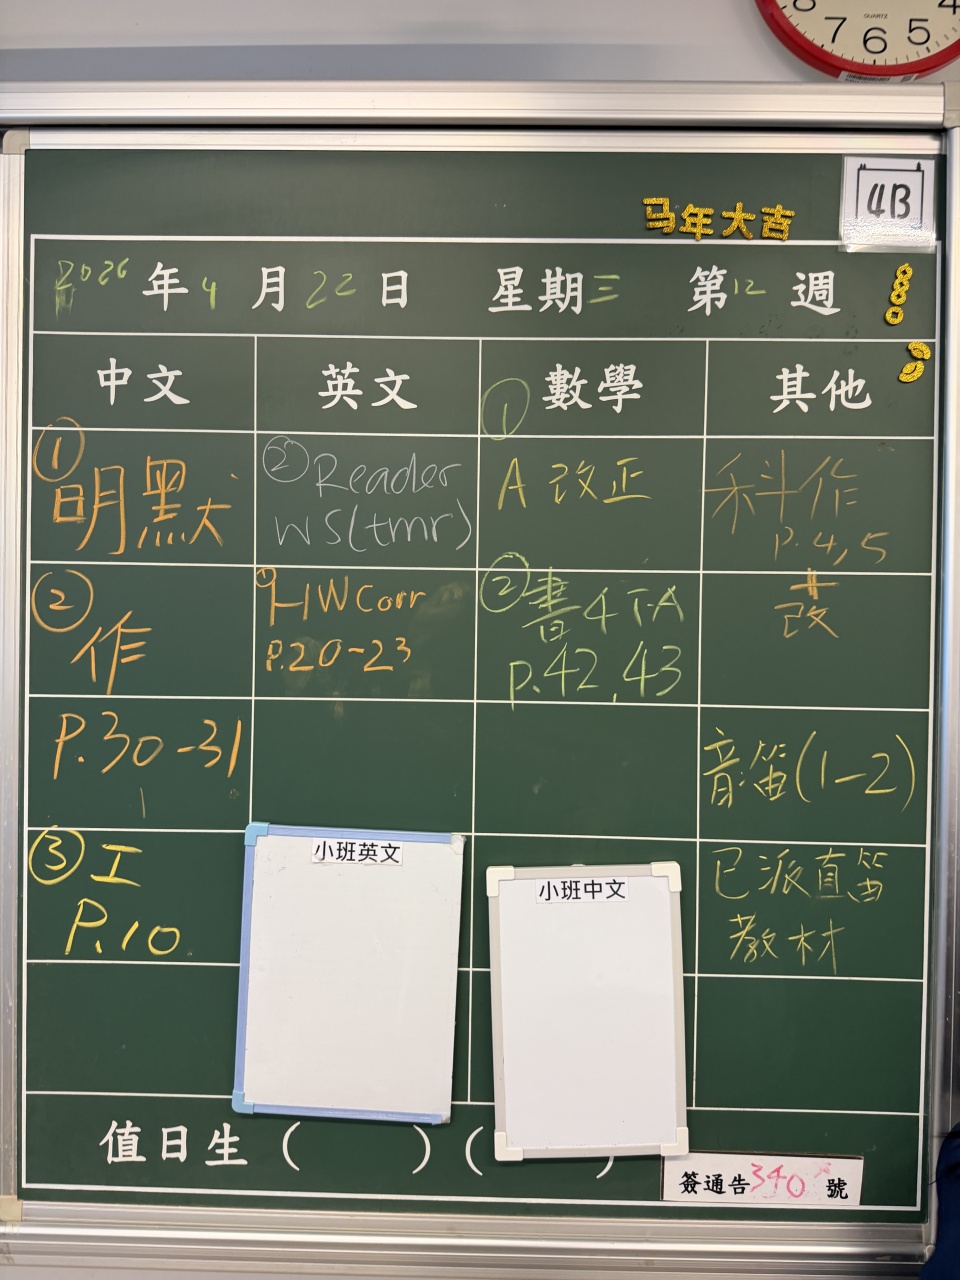 8 7 6 5 4
QUARTZ
马年大吉
4B
2026年4月22日 星期三 第12週
中文 英文 數學 其他
① 明默
② 作
P.30-31
③ 工
P.10
② Reader
WS(tmr)
① HW Corr
P.20-23
①
A 改正
② 書4下A
P.42,43
科作
P.4,5
+
改
音:笛(1-2)
已派直笛
教材
小班英文
小班中文
值日生 ( ) ( )
簽通告340號